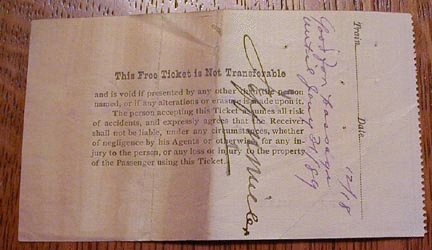 This Free Ticket is Not Transferable
and is void if presented by any other than the person
named, or if any alterations or erasure is made upon it.
The person accepting this Ticket assumes all risk
of accidents, and expressly agrees that the Receiver
shall not be liable, under any circumstances, whether
of negligence by his Agents or otherwise for any in-
jury to the person, or any loss or injury to the property
of the Passenger using this Ticket.
Train Date 12/18
Good for passage
until Jany